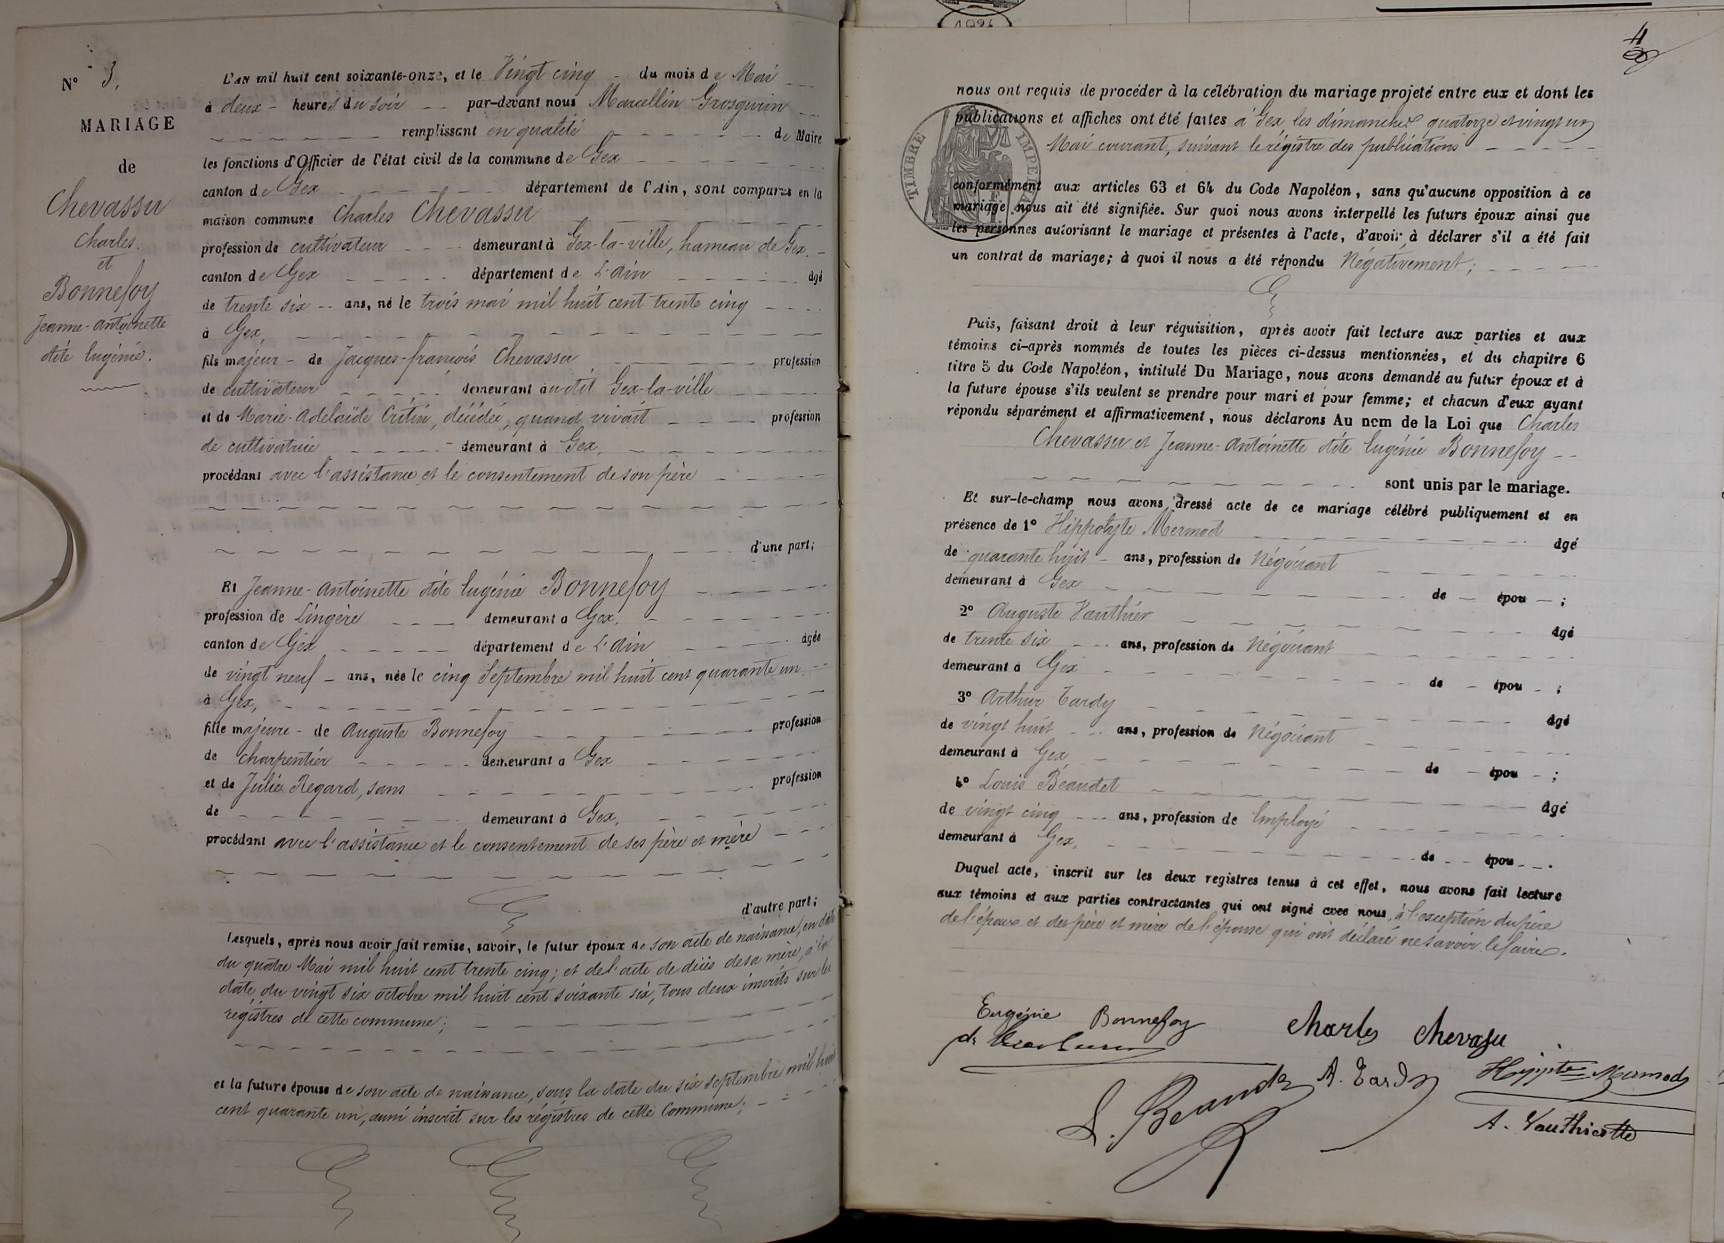 N° 3.
MARIAGE
de
Chevassu
Charles.
et
Bonnefoy
Jeanne-Antoinette
dite Eugénie.
L'AN mil huit cent soixante-onze, et le Vingt cinq du mois de Mai
à deux heures du soir par-devant nous Marcellin Grosgurin
remplissant en qualité de Maire
les fonctions d'Officier de l'état civil de la commune de Gex
canton de Gex département de l'Ain, sont comparus en la
maison commune Charles Chevassu
profession de cultivateur demeurant à Gex-la-ville, hameau de Gex,
canton de Gex département de L'Ain âgé
de trente six ans, né le trois mai mil huit cent trente cinq
à Gex,
fils majeur de Jacques-françois Chevassu profession
de cultivateur demeurant audit Gex-la-ville
et de Marie-Adelaïde Crétin, décédée, quand vivait profession
de cultivatrice demeurant à Gex,
procédant avec l'assistance et le consentement de son père
d'une part;
Et Jeanne-Antoinette dite Eugénie Bonnefoy
profession de Lingère demeurant à Gex.
canton de Gex département de L'Ain âgée
de vingt neuf ans, née le cinq Septembre mil huit cent quarante un
à Gex,
fille majeure de Auguste Bonnefoy profession
de charpentier demeurant à Gex
et de Julie Regard, sans profession
de demeurant à Gex,
procédant avec l'assistance et le consentement de ses père et mère
d'autre part;
Lesquels, après nous avoir fait remise, savoir, le futur époux de son acte de naissance, en date
du quatre Mai mil huit cent trente cinq; et de l'acte de décès de sa mère, à la
date du vingt six octobre mil huit cent soixante six, tous deux inscrits sur les
régistres de cette commune;
et la future épouse de son acte de naissance, sous la date du six septembre mil huit
cent quarante un, aussi inscrit sur les régistres de cette Commune;
4
nous ont requis de procéder à la célébration du mariage projeté entre eux et dont les
publications et affiches ont été faites à Gex les dimanches quatorze et vingt un
Mai courant, suivant le régistre des publications
TIMBRE IMPERIAL
conformément aux articles 63 et 64 du Code Napoléon, sans qu'aucune opposition à ce
mariage nous ait été signifiée. Sur quoi nous avons interpellé les futurs époux ainsi que
les personnes autorisant le mariage et présentes à l'acte, d'avoir à déclarer s'il a été fait
un contrat de mariage; à quoi il nous a été répondu Négativement;
Puis, faisant droit à leur réquisition, après avoir fait lecture aux parties et aux
témoins ci-après nommés de toutes les pièces ci-dessus mentionnées, et du chapitre 6
titre 5 du Code Napoléon, intitulé Du Mariage, nous avons demandé au futur époux et à
la future épouse s'ils veulent se prendre pour mari et pour femme; et chacun d'eux ayant
répondu séparément et affirmativement, nous déclarons Au nom de la Loi que Charles
Chevassu et Jeanne-Antoinette dite Eugénie Bonnefoy
sont unis par le mariage.
Et sur-le-champ nous avons dressé acte de ce mariage célébré publiquement et en
présence de 1° Hippolyte Mermod âgé
de quarante huit ans, profession de Négociant
demeurant à Gex de épou ;
2° Auguste Vauthier âgé
de trente six ans, profession de Négociant
demeurant à Gex de épou ;
3° Arthur Tardy âgé
de vingt huit ans, profession de Négociant
demeurant à Gex de épou ;
4° Louis Béaudet âgé
de vingt cinq ans, profession de Employé
demeurant à Gex, de épou .
Duquel acte, inscrit sur les deux registres tenus à cet effet, nous avons fait lecture
aux témoins et aux parties contractantes qui ont signé avec nous, à l'exception du père
de l'époux et des père et mère de l'épouse qui ont déclaré ne savoir le faire.
Eugénie Bonnefoy
Charles Chevassu
L. Beaudet
A. Tardy
Hippte Mermod
A. Vauthier